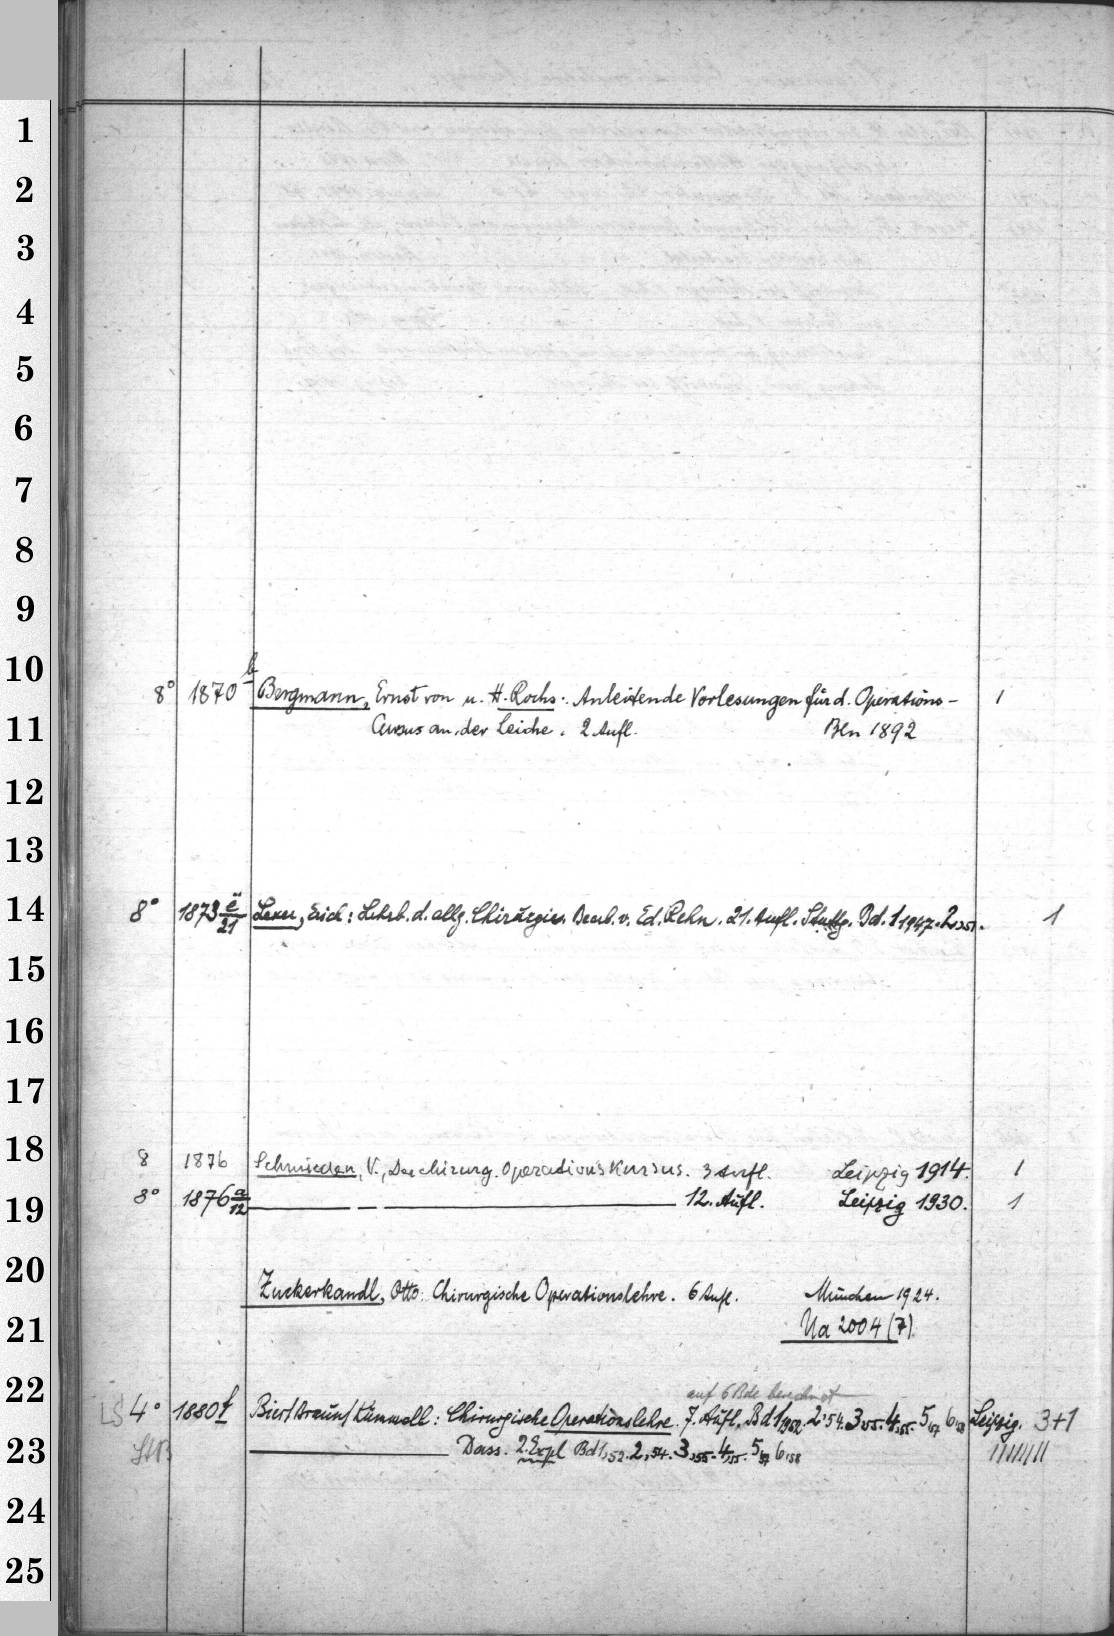 1
2
3
4
5
6
7
8
9
10
8° 1870 b Bergmann, Ernst von u. H. Rochs: Anleitende Vorlesungen für d. Operations- 1
11 Cursus an der Leiche. 2 Aufl. Bln 1892
12
13
14 8° 1873 e/21 Lexer, Erich: Lehrb. d. allg. Chirurgie. Bearb. v. Ed. Rehn. 21. Aufl. Stuttg. Bd. 1 1947. 2, 1951. 1
15
16
17
18 8 1876 Schmieden, V., Der chirurg. Operationskursus. 3 Aufl. Leipzig 1914. 1
19 8° 1876 a/12 12. Aufl. Leipzig 1930. 1
20
Zuckerkandl, Otto: Chirurgische Operationslehre. 6 Aufl. München 1924.
21 Ua 2004 (7)
22 auf 6 Bde berechnet
LS 4° 1880 f Bier/Braun/Kümmell: Chirurgische Operationslehre. 7. Aufl. Bd 1, 1952. 2, 54. 3, 55. 4, 55. 5, 57 6, 58 Leipzig. 3+1
23 Dass. 2. Expl Bd 1, 52. 2, 54. 3, 55. 4, 55. 5, 57 6, 58
24
25